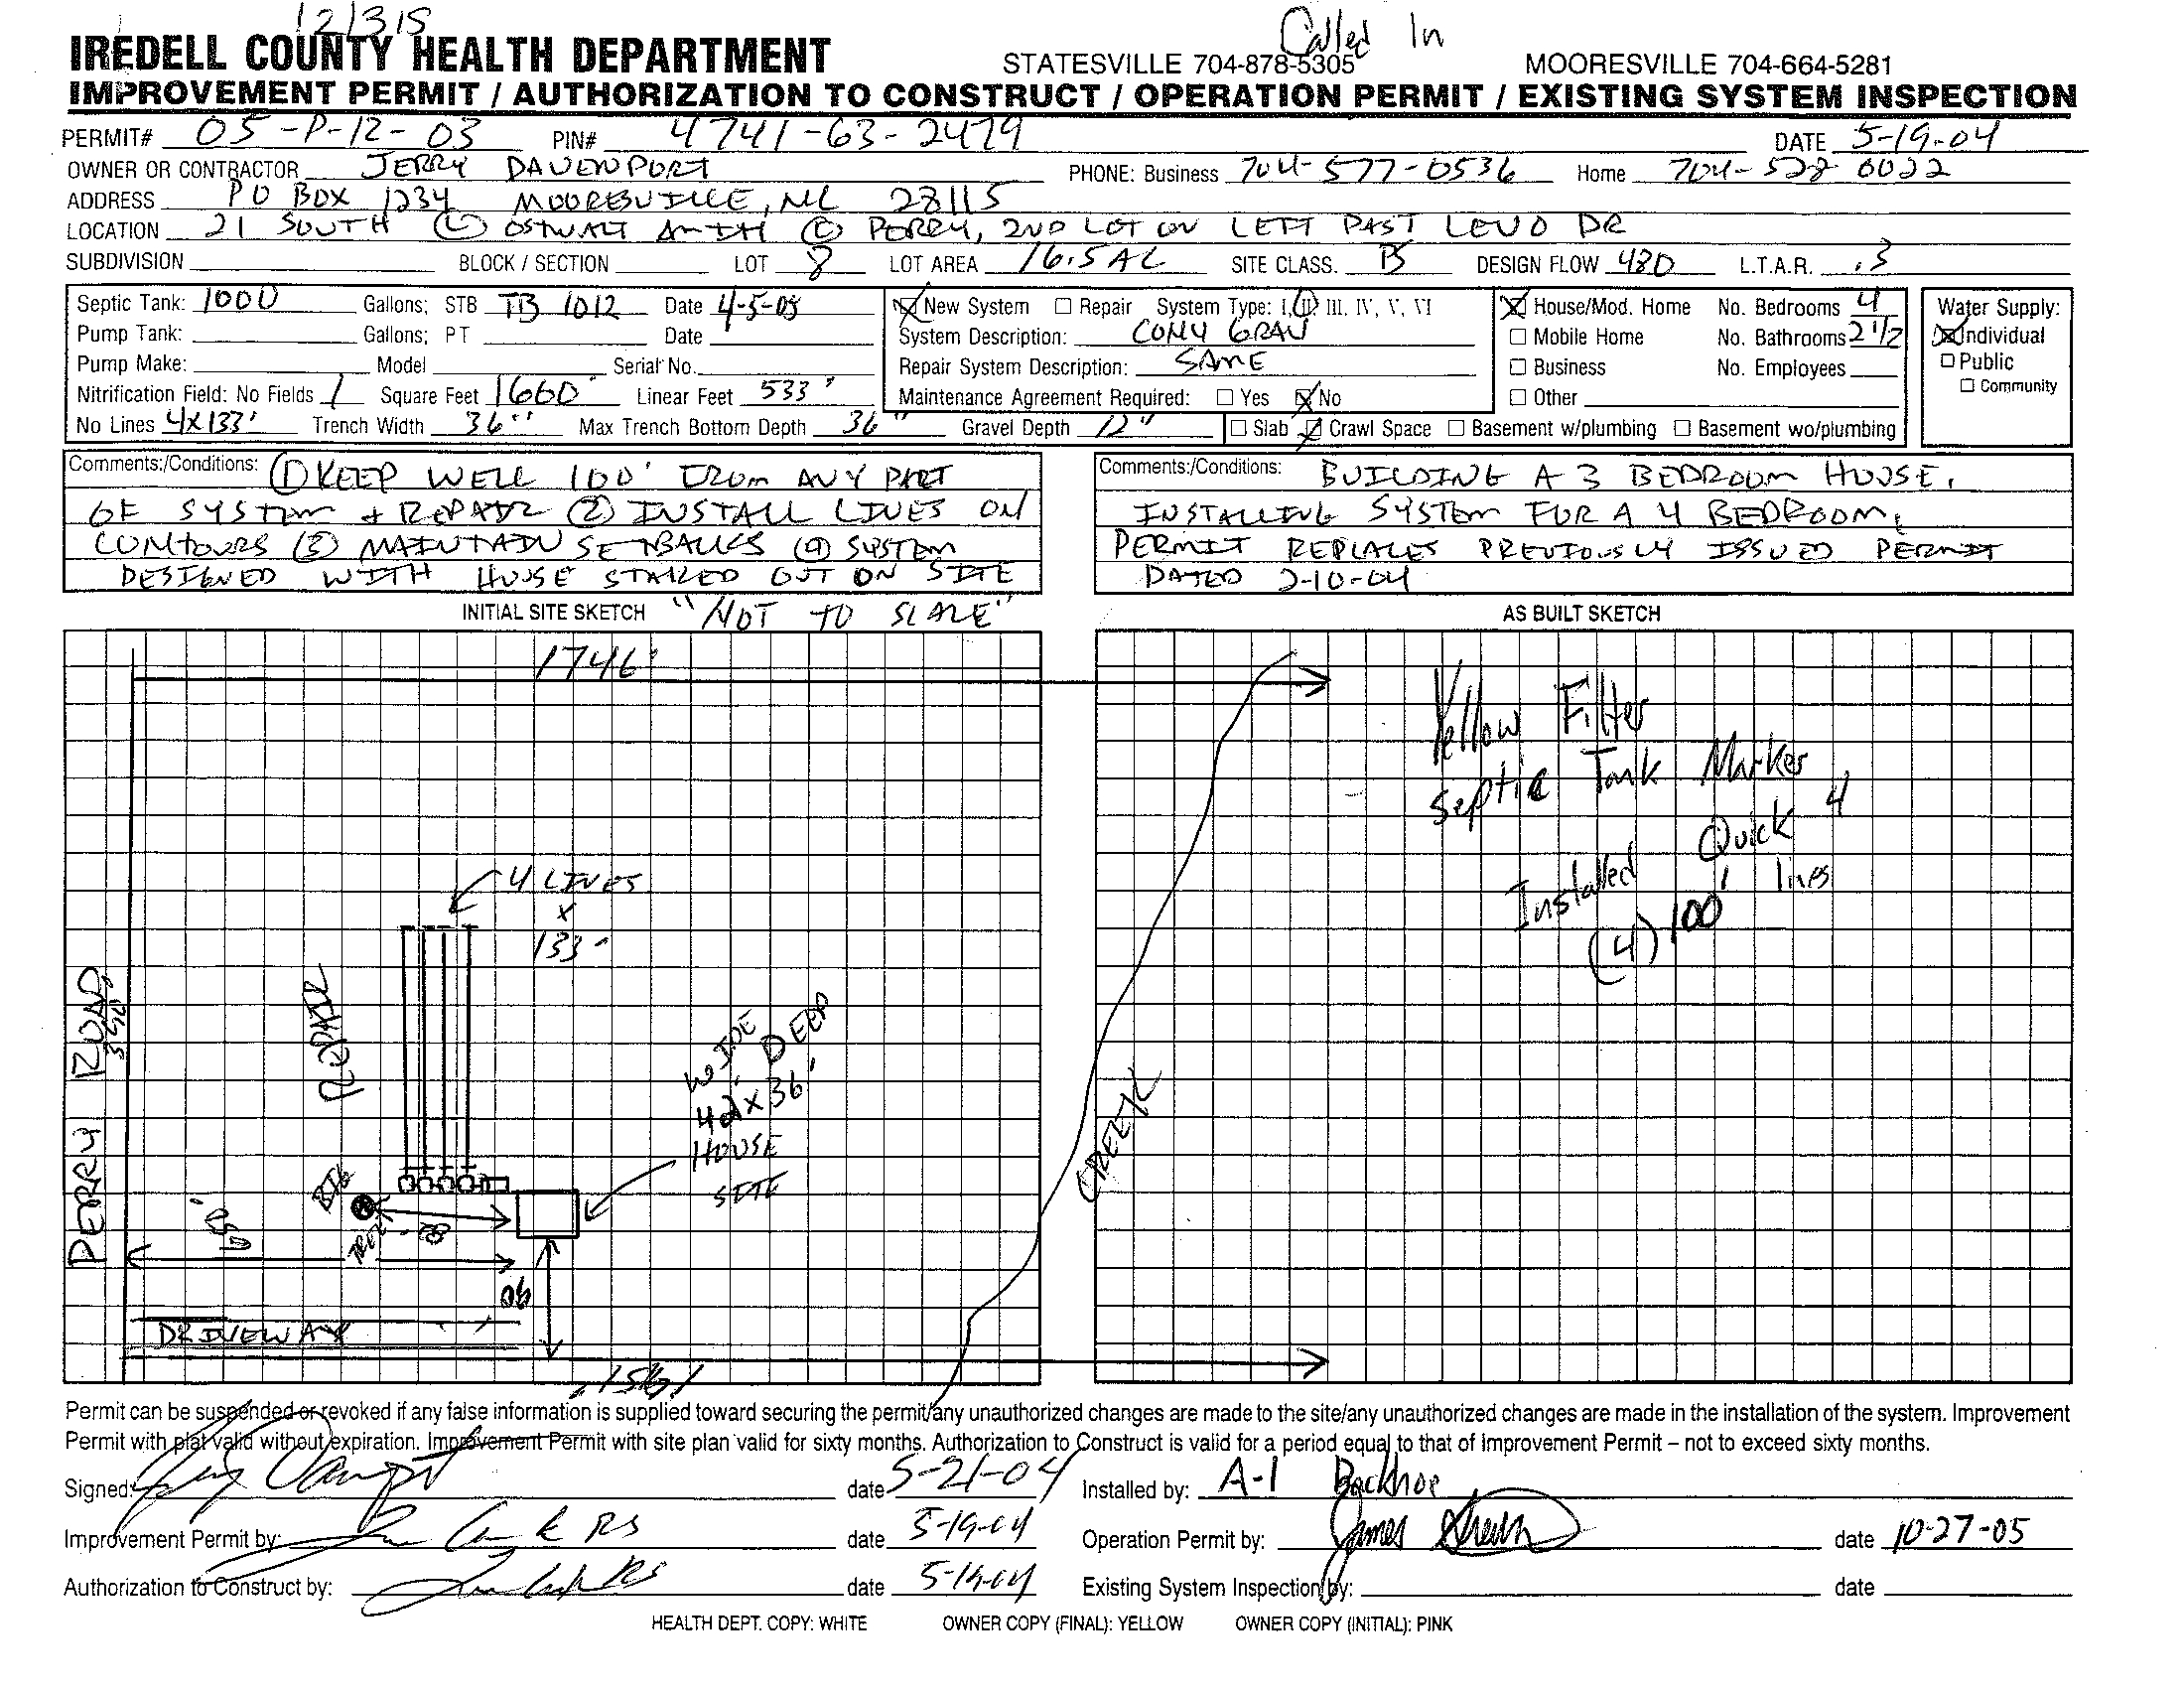 12/315
Called In
IREDELL COUNTY HEALTH DEPARTMENT STATESVILLE 704-878-5305 MOORESVILLE 704-664-5281
IMPROVEMENT PERMIT / AUTHORIZATION TO CONSTRUCT / OPERATION PERMIT / EXISTING SYSTEM INSPECTION
PERMIT# 05-P-12-03 PIN# 4741-63-2479 DATE 5-19-04
OWNER OR CONTRACTOR JERRY DAVENPORT PHONE: Business 704-577-0536 Home 704-528 0022
ADDRESS PO BOX 1234 MOORESVILLE, NC 28115
LOCATION 21 SOUTH (L) OSTWALT AMITY (L) PERRY, 2ND LOT ON LEFT PAST LEVO DR
SUBDIVISION BLOCK / SECTION LOT 8 LOT AREA 16.5 AC SITE CLASS. PS DESIGN FLOW 480 L.T.A.R. .3
Septic Tank: 1000 Gallons; STB TB 1012 Date 4-5-05 New System Repair System Type: I, II, III, IV, V, VI House/Mod. Home No. Bedrooms 4 Water Supply:
Pump Tank: Gallons; PT Date System Description: CONV GRAV Mobile Home No. Bathrooms 2 1/2 Individual
Pump Make: Model Serial No. Repair System Description: SAME Business No. Employees Public
Nitrification Field: No Fields 1 Square Feet 1600' Linear Feet 533' Maintenance Agreement Required: Yes No Other Community
No Lines 4x133' Trench Width 36" Max Trench Bottom Depth 36" Gravel Depth 12" Slab Crawl Space Basement w/plumbing Basement wo/plumbing
Comments:/Conditions: (1) KEEP WELL 100' FROM ANY PART
OF SYSTEM + REPAIR (2) INSTALL LINES ON
CONTOURS (3) MAINTAIN SETBACKS (4) SYSTEM
DESIGNED WITH HOUSE STAKED OUT ON SITE
Comments:/Conditions: BUILDING A 3 BEDROOM HOUSE,
INSTALLING SYSTEM FOR A 4 BEDROOM,
PERMIT REPLACES PREVIOUSLY ISSUED PERMIT
DATED 2-10-04
INITIAL SITE SKETCH "NOT TO SCALE"
AS BUILT SKETCH
1746'
Yellow Filter
Septic Tank Marker
Installed Quick 4
(4) 100' lines
4 LINES
x
133'
PERRY ROAD
REPAIR
WIDE DEEP
42' x 36'
HOUSE
SITE
CREEK
BIG
TREE
90
DRIVEWAY
Permit can be suspended or revoked if any false information is supplied toward securing the permit/any unauthorized changes are made to the site/any unauthorized changes are made in the installation of the system. Improvement
Permit with plat valid without expiration. Improvement Permit with site plan valid for sixty months. Authorization to Construct is valid for a period equal to that of Improvement Permit – not to exceed sixty months.
Signed: date 5-21-04 Installed by: A-1 Backhoe
Improvement Permit by: RS date 5-19-04 Operation Permit by: James date 10-27-05
Authorization to Construct by: RS date 5-19-04 Existing System Inspection by: date
HEALTH DEPT. COPY: WHITE OWNER COPY (FINAL): YELLOW OWNER COPY (INITIAL): PINK